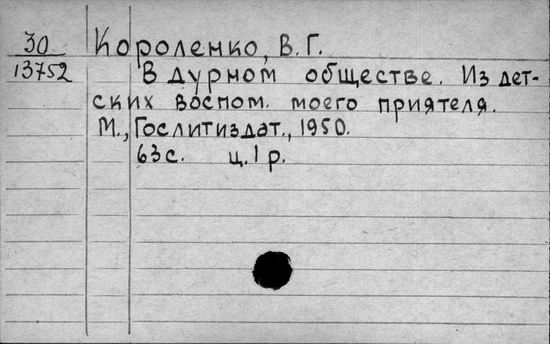 30 Короленко, В.Г.
13752 В дурном обществе. Из дет-
ских воспом. моего приятеля.
М., Гослитиздат., 1950.
63с. ц. 1 р.